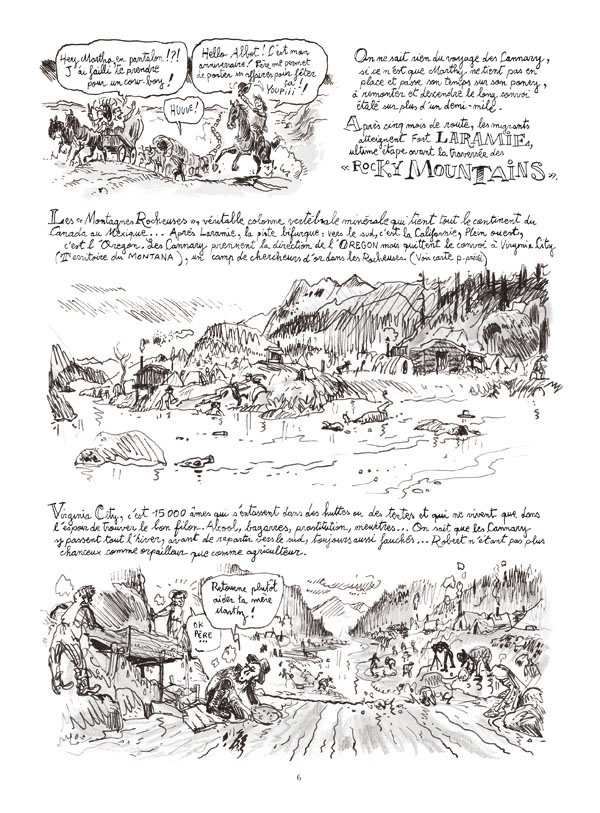 Hey, Martha, en pantalon!?!
J'ai failli te prendre
pour un cow-boy!
Hello Abbot! C'est mon
anniversaire! Père me permet
de porter ses affaires pour fêter
ça
Youpiii!
HUUUE!
On ne sait rien du voyage des Cannary,
si ce n'est que Marthy ne tient pas en
place et passe son temps sur son poney,
à remonter et descendre le long convoi
étalé sur plus d'un demi-mile.
Après cinq mois de route, les migrants
atteignent Fort LARAMIE,
ultime étape avant la traversée des
«ROCKY MOUNTAINS».
Les «Montagnes Rocheuses», véritable colonne vertébrale minérale qui tient tout le continent du
Canada au Mexique... Après Laramie, la piste bifurque: vers le sud, c'est la Californie, Plein ouest,
c'est l'Oregon. Les Cannary prennent la direction de l'OREGON mais quittent le convoi à Virginia City
(Territoire du MONTANA), un camp de chercheurs d'or dans les Rocheuses. (Voir carte p. précéd.)
Virginia City, c'est 15000 âmes qui s'entassent dans des huttes ou des tentes et qui ne vivent que dans
l'espoir de trouver le bon filon. Alcool, bagarres, prostitution, meurtres... On sait que les Cannary
y passent tout l'hiver, avant de repartir vers le sud, toujours aussi fauchés... Robert n'étant pas plus
chanceux comme orpailleur que comme agriculteur.
Retourne plutôt
aider ta mère
Marthy!
OK
PÈRE
...
6